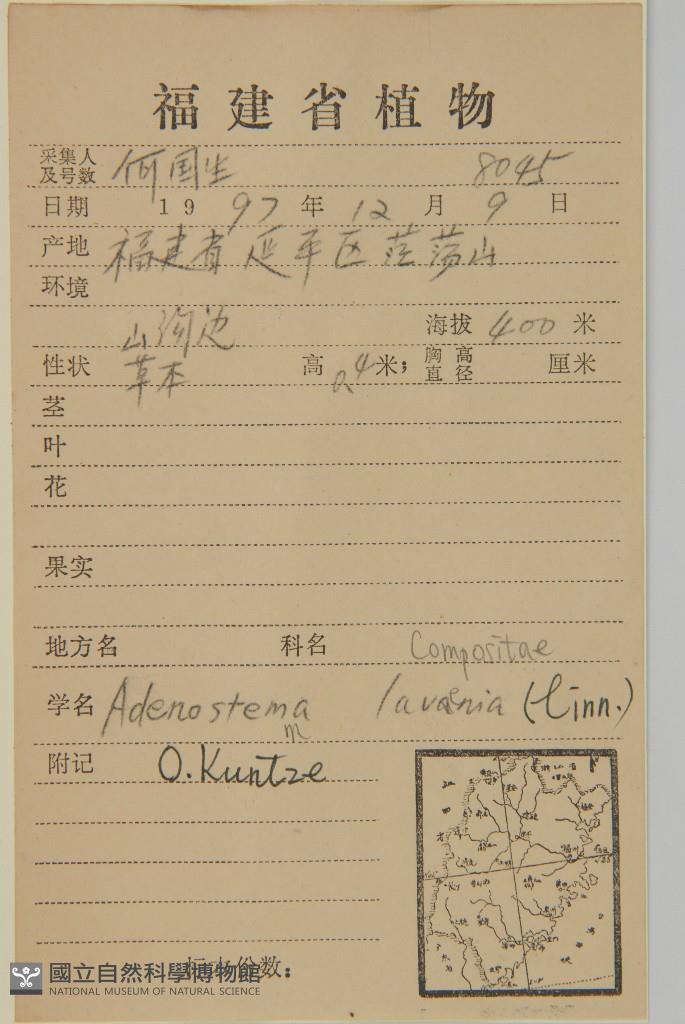 福建省植物
采集人及号数 何国生 8045
日期 1997年12月9日
产地 福建省延平区茫荡山
环境
山沟边 海拔 400 米
性状 草本 高 0.4 米; 胸高直径 厘米
茎
叶
花
果实
地方名 科名 Compositae
学名 Adenostema lavenia (Linn.)
m
附记 O. Kuntze
份数:
國立自然科學博物館
NATIONAL MUSEUM OF NATURAL SCIENCE